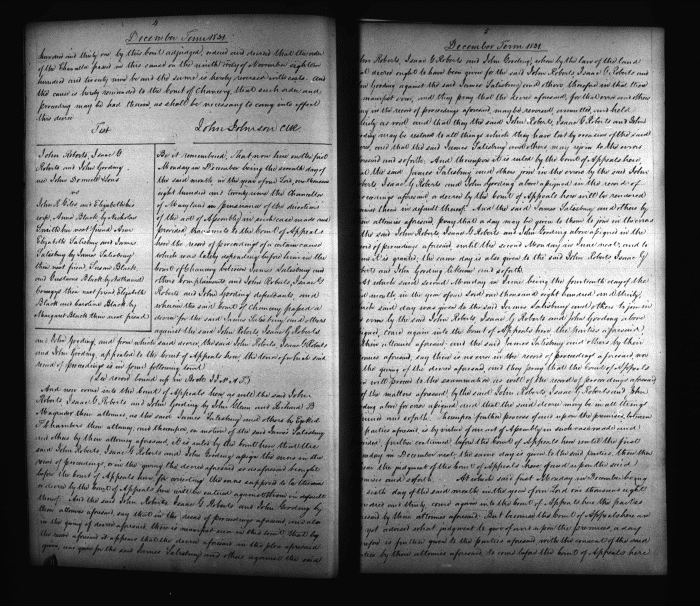 4
December Term 1831.
hundred and thirty one by this court adjudged, ordered and decreed that the order
of the Chancellor passed in this cause on the ninth day of November eighteen
hundred and twenty nine be and the same is hereby reversed with costs. And
this cause is hereby remanded to the court of chancery that such order and
proceeding may be had therein, as shall be necessary to carry into effect
this decree
Test John Johnson Clk
John Roberts, Isaac G
Roberts and John Gooding
and John
vs
John R Giles and Elizabeth his
wife, Anna Black by Nicholas
Smith her next friend Ann
Elizabeth Salisbury and James
Salisbury by James Salisbury
their next friend, Susan Black,
and Gustavus Black by Nathaniel
their next friend Elizabeth
Black and Caroline Black by
Margaret Black their next friend
Be it remembered, That now here on the first
Monday in December being the seventh day of
the said month in the year of our Lord, one thousand
eight hundred and twenty nine the Chancellor
of Maryland in pursuance of the directions
of the act of Assembly in such case made and
provided transmits to the court of Appeals
here the record of proceedings of a certain cause
which was lately depending before him in the
court of Chancery between James Salisbury and
others Complainants and John Roberts, Isaac G
Roberts and John Gooding defendants, and
wherein the said court of chancery passed a
decree for the said James Salisbury and others
against the said John Roberts, Isaac G Roberts
and John Gooding, and from which said decree, the said John Roberts, Isaac G Roberts
and John Gooding, appealed to the court of Appeals here, the tenor of which said
record of proceedings is in form following to wit
(See record bound up in Book
And now come into the court of Appeals here as well the said John
Roberts Isaac G. Roberts and John Gooding by John Glenn and Richard B
Magruder their attornies, as the said James Salisbury and others by Ezekiel
F Chambers their attorney, and thereupon, on motion of the said James Salisbury
and others by their attorney aforesaid, it is ruled by the court here that the
said John Roberts, Isaac G Roberts and John Gooding assign the errors in the
record of proceedings, or in the giving the decree aforesaid so as aforesaid brought
before the court of Appeals here for correcting the errors supposed to be therein
or decree by the court of Appeals here will be entered against them in default
thereof. And the said John Roberts, Isaac G Roberts and John Gooding by
their attornies aforesaid, say that in the record of proceedings aforesaid and also
in the giving of decree aforesaid there is manifest error in this to wit that by
the record aforesaid it appears that the decree aforesaid in the plea aforesaid
given, was given for the said James Salisbury and others against the said
5
December Term 1831
John Roberts, Isaac G Roberts and John Gooding, when by the law of the land
decree ought to have been given for the said John Roberts Isaac G. Roberts and
John Gooding against the said James Salisbury and others therefore in that there
manifest error, and they pray that the decree aforesaid, for that error and others
in the record of proceedings aforesaid, may be reversed, annulled, and held
entirely as void and that they the said John Roberts, Isaac G Roberts and John
Gooding may be restored to all things which they have lost by occasion of the said
decree, and that the said James Salisbury and others may rejoin to the errors
aforesaid and so forth. And thereupon it is ruled by the court of Appeals here,
that the said James Salisbury and others join in the errors by the said John
Roberts, Isaac G Roberts and John Gooding above assigned in the record of
proceedings aforesaid or decree by the court of Appeals here will be rendered
against them in default thereof. And the said James Salisbury and others by
their attornies aforesaid, pray that a day may be given to them to join in the errors
the said John Roberts, Isaac G Roberts and John Gooding above assigned in the
record of proceedings aforesaid, until the second Monday in June next; and to
them it is granted, the same day is also given to the said John Roberts Isaac G
Roberts and John Gooding likewise and so forth.
At which said second Monday in June being the fourteenth day of the
said month in the year of our Lord one thousand eight hundred and thirty,
which said day was given to the said James Salisbury and others to join in
the errors by the said John Roberts, Isaac G Roberts and John Gooding above
assigned, come again into the court of Appeals here the parties aforesaid
by their attornies aforesaid, and the said James Salisbury and others by their
attornies aforesaid, say there is no error in the record of proceedings aforesaid nor
in the giving of the decree aforesaid, and they pray that the court of Appeals
here will proceed to the examination as well of the record of proceedings aforesaid
as of the matters aforesaid, by the said John Roberts, Isaac G Roberts and John
Gooding above for error assigned and that the said decree may be in all things
affirmed and so forth. Whereupon further process of and upon the premises, between
the parties aforesaid is, by virtue of an act of Assembly in such case made and
provided, further continued before the court of Appeals here until the first
Monday in December next; the same day is given to the said parties, there then
to hear the judgment of the court of Appeals here of and upon the said
premises and so forth. At which said first Monday in December being
the sixth day of the said month in the year of our Lord one thousand eight
hundred and thirty, come again into the court of Appeals here the parties
aforesaid by their attornies aforesaid. But because the court of Appeals here are
not yet advised what judgment to give of and upon the premises, a day
therefore is further given to the parties aforesaid with the consent of the said
parties by their attornies aforesaid, to come before the court of Appeals here